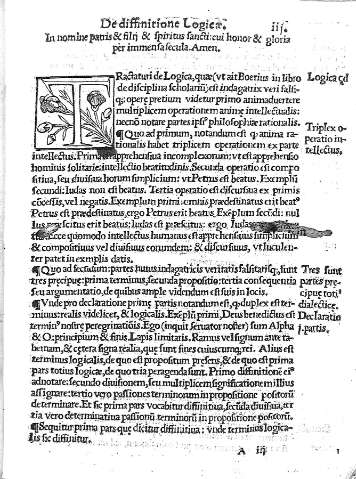 De diffinitione Logicæ. iij.
In nomine patris & filij & spiritus sancti: cui honor & gloria
per immensa secula. Amen.
TRactaturi de Logica, quæ (vt ait Boetius in libro
de disciplina scholariũ) est indagatrix veri falsi-
q̃: operę pretium videtur primo animaduertere
multiplicem operationem animę intellectiuæ:
necnõ notare partes ipsi⁹ philosophiæ rationalis.
¶ Quo ad primum, notandum est q̃ anima ra-
tionalis habet triplicem operationem ex parte
intellectus. Prima apprehensiua incomplexorum: vt est apprehensio
hominis solitarie: intellectio beatitudinis. Secunda operatio est compo
sitiua, seu diuisiua horum extremorum: vt Petrus est beatus. Exempli
secundi: Iudas non est beatus. Tertia operatio est discursiua ex primis
cõcessis, vel negatis. Exemplum primi: omnis prædestinatus erit beat⁹
Petrus est prædestinatus, ergo Petrus erit beatus. Exẽplum secũdi: nul
lus erit beatus: Iudas est ergo Iudas
quomodo intellectus humanus est apprehensiuus simplicium
& compositiuus vel diuisiuus eorundem: & discursiuus, vt luculen-
ter patet in exemplis datis.
¶ Quo ad secũdum: partes huius indagatricis veritatis falsitatisq̃, sunt
tres pręcipuę: prima terminus, secunda propositio: tertia consequentia
seu argumentatio, de quibus videndum est suis in locis.
¶ Vnde pro declaratione primę partis notandum est, q̃ duplex est ter-
minus: realis videlicet, & logicalis. Exẽplũ primi, Deus benedictus est
termin⁹ nostrę peregrinatiõis. Ego (inquit seruator noster) sum Alpha
& O: principium & finis. Lapis limitaris. Ramus vel signum ante ta-
bernam, & cętera signa realia, quę sunt fines cuiuscunq̃ rei. Alius est
terminus logicalis, de quo est propositum pręsens, & de quo est prima
pars totius logicæ, de quo tria peragenda sunt. Primo diffinitionẽ ei⁹
adnotare: secundo diuisionem, seu multiplicem significationem illius
assignare: tertio vero passiones terminorum in propositione positorũ
determinare. Et sic prima pars vocabitur diffinitiua, secũda diuisiua, ter
tia vero determinatiua passionũ terminorum in propositione positorũ.
¶ Sequitur prima pars quę dicitur diffinitiua: vnde terminus logica-
lis sic diffinitur.
A iij
Logica qd
Triplex o-
peratio in-
tellectus.
Tres sunt
partes prę-
cipuę toti⁹
dialecticę.
Declaratio
j. partis.